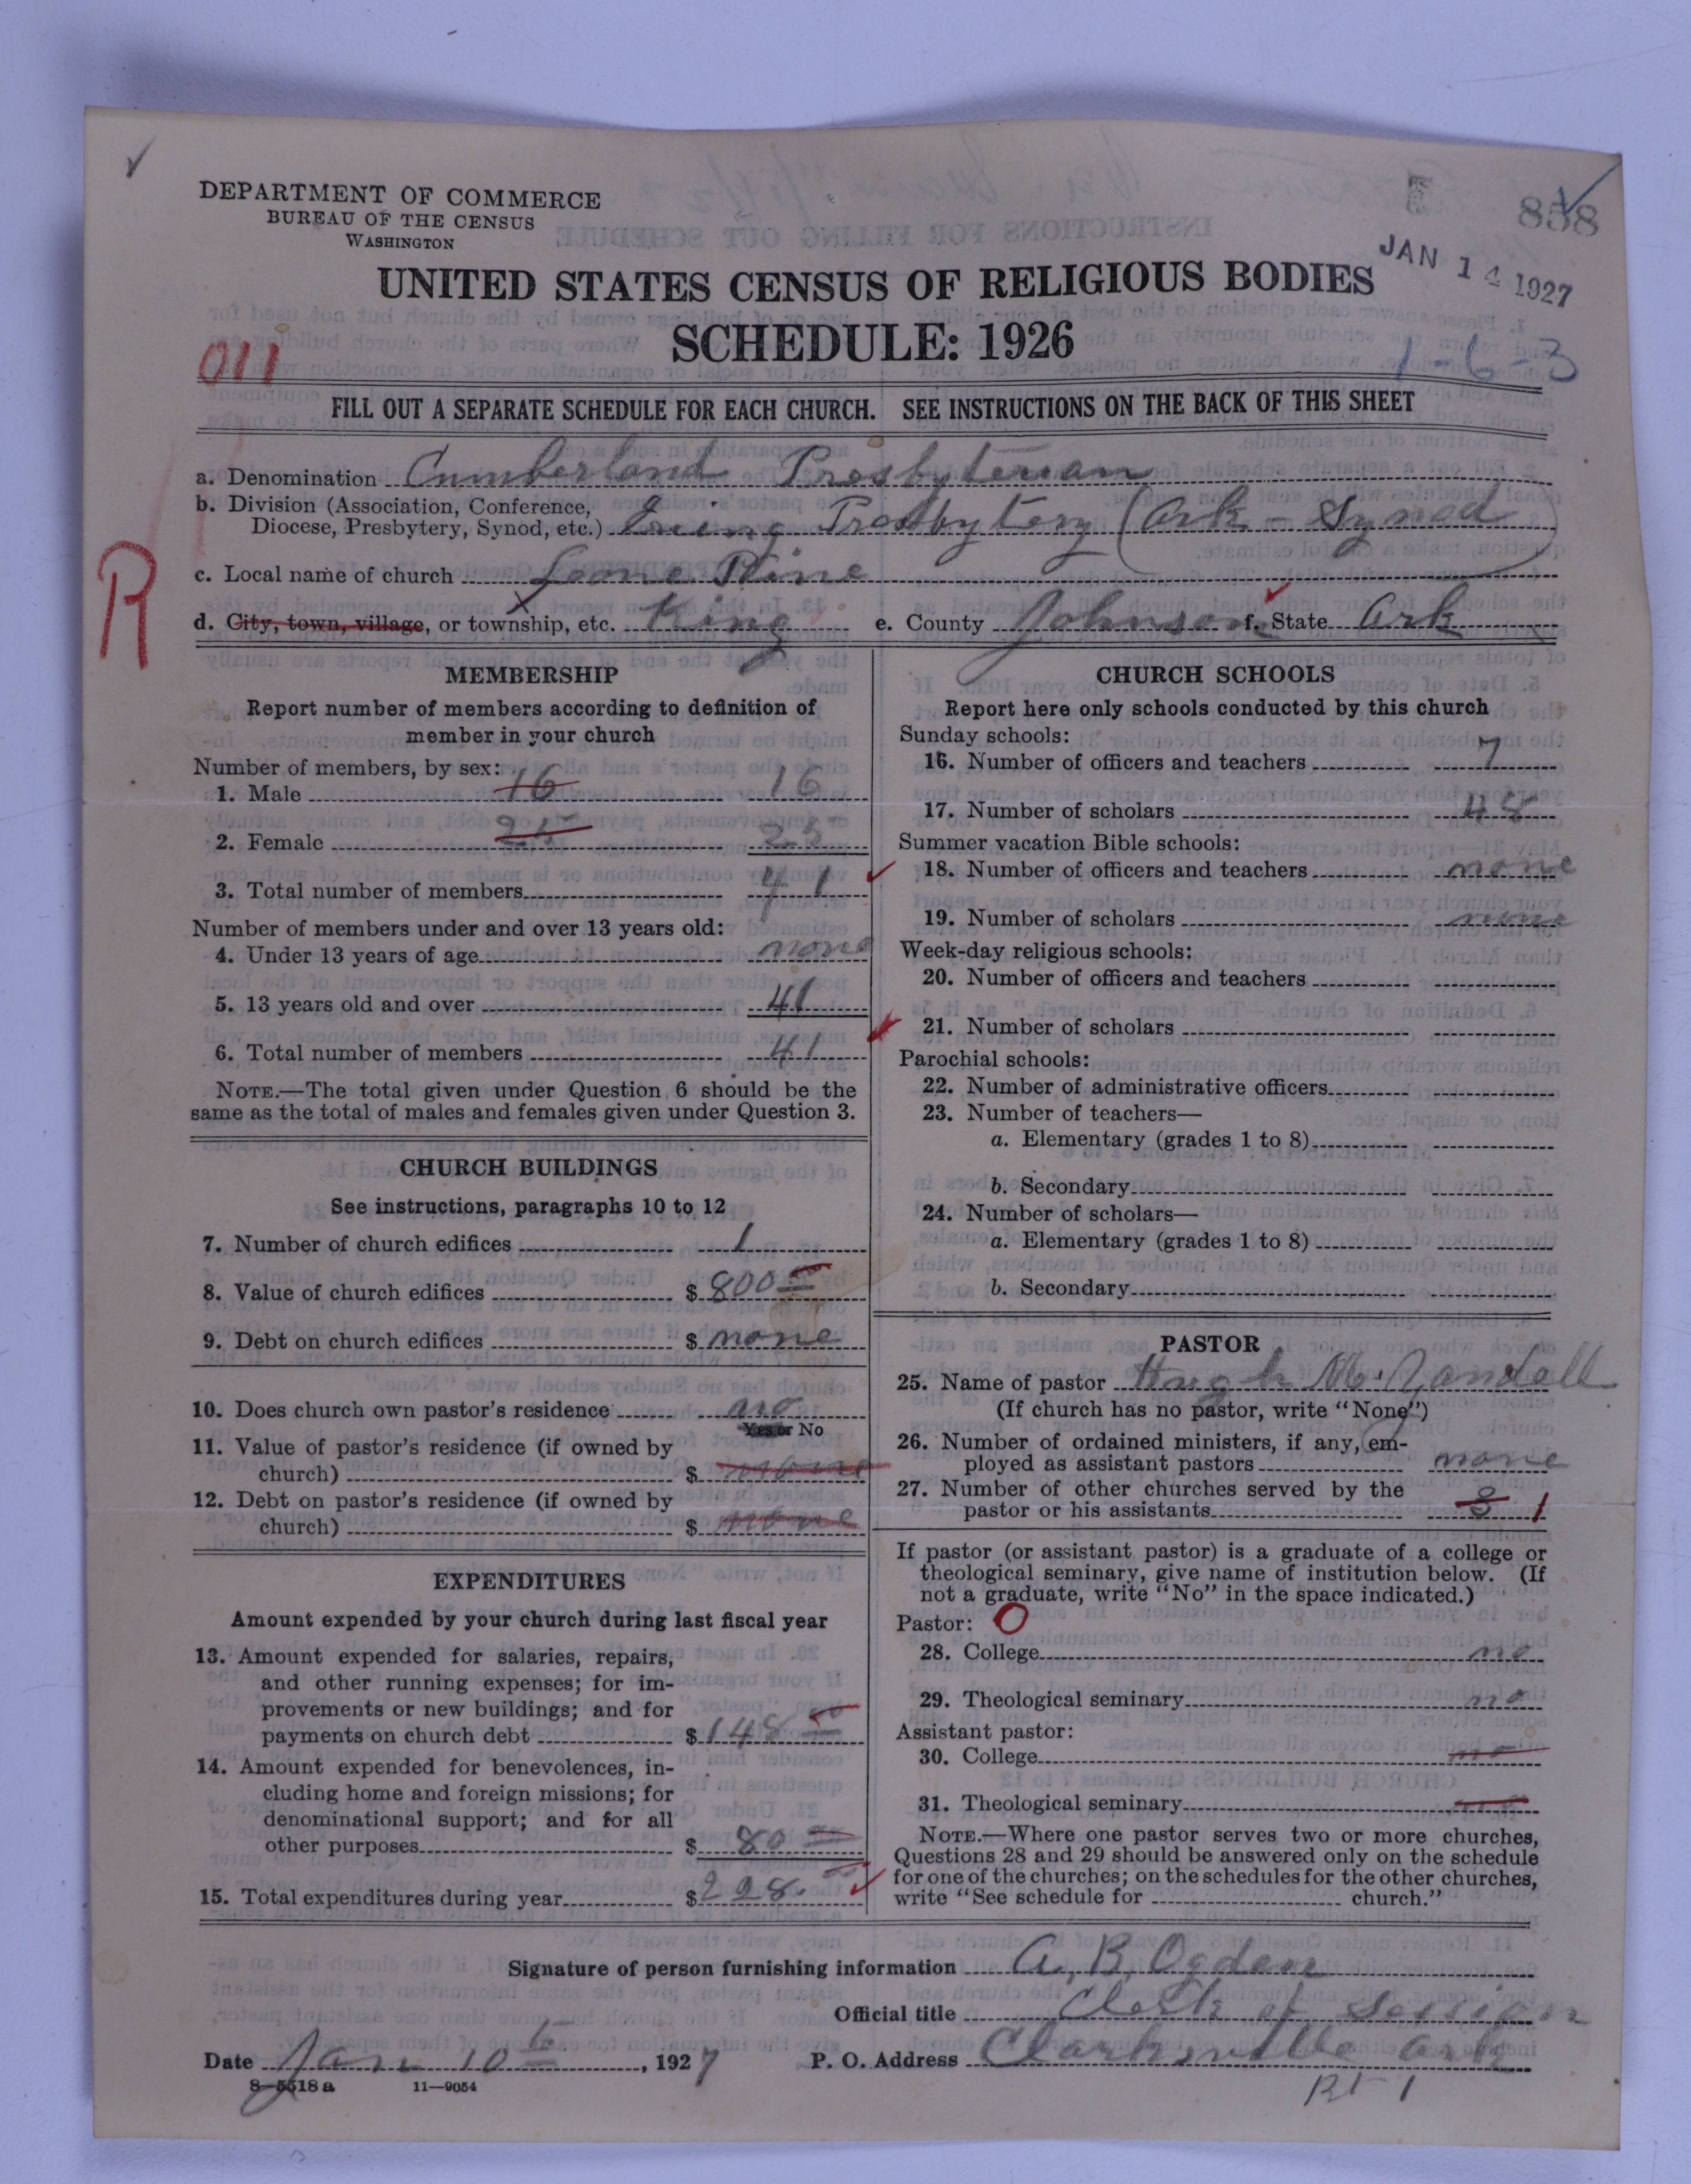 ✓
DEPARTMENT OF COMMERCE
BUREAU OF THE CENSUS
WASHINGTON
858
JAN 14 1927
UNITED STATES CENSUS OF RELIGIOUS BODIES
SCHEDULE: 1926
011
1-6-3
FILL OUT A SEPARATE SCHEDULE FOR EACH CHURCH. SEE INSTRUCTIONS ON THE BACK OF THIS SHEET
a. Denomination Cumberland Presbyterian
b. Division (Association, Conference,
Diocese, Presbytery, Synod, etc.) Ewing Presbytery (Ark - Synod)
R
c. Local name of church Lone Pine
d. City, town, village, or township, etc. King e. County Johnson f. State Ark
MEMBERSHIP
Report number of members according to definition of
member in your church
Number of members, by sex:
1. Male 16 16
2. Female 25 25
3. Total number of members 41
Number of members under and over 13 years old:
4. Under 13 years of age none
5. 13 years old and over 41
6. Total number of members 41
NOTE.—The total given under Question 6 should be the
same as the total of males and females given under Question 3.
CHURCH BUILDINGS
See instructions, paragraphs 10 to 12
7. Number of church edifices 1
8. Value of church edifices $ 800
9. Debt on church edifices $ none
10. Does church own pastor's residence no
Yes or No
11. Value of pastor's residence (if owned by
church) $ none
12. Debt on pastor's residence (if owned by
church) $ none
EXPENDITURES
Amount expended by your church during last fiscal year
13. Amount expended for salaries, repairs,
and other running expenses; for im-
provements or new buildings; and for
payments on church debt $ 148 00
14. Amount expended for benevolences, in-
cluding home and foreign missions; for
denominational support; and for all
other purposes $ 80
15. Total expenditures during year $ 228.
CHURCH SCHOOLS
Report here only schools conducted by this church
Sunday schools:
16. Number of officers and teachers 7
17. Number of scholars 48
Summer vacation Bible schools:
18. Number of officers and teachers none
19. Number of scholars none
Week-day religious schools:
20. Number of officers and teachers
21. Number of scholars
Parochial schools:
22. Number of administrative officers
23. Number of teachers—
a. Elementary (grades 1 to 8)
b. Secondary
24. Number of scholars—
a. Elementary (grades 1 to 8)
b. Secondary
PASTOR
25. Name of pastor Hugh M.
(If church has no pastor, write "None")
26. Number of ordained ministers, if any, em-
ployed as assistant pastors none
27. Number of other churches served by the
pastor or his assistants 3 1
If pastor (or assistant pastor) is a graduate of a college or
theological seminary, give name of institution below. (If
not a graduate, write "No" in the space indicated.)
Pastor: O
28. College no
29. Theological seminary no
Assistant pastor:
30. College no
31. Theological seminary no
NOTE.—Where one pastor serves two or more churches,
Questions 28 and 29 should be answered only on the schedule
for one of the churches; on the schedules for the other churches,
write "See schedule for church."
Signature of person furnishing information A. B. Ogden
Official title Clerk of Session
Date Jan 10th, 1927 P. O. Address Clarksville Ark
8-5518 a 11-9054
Rt 1